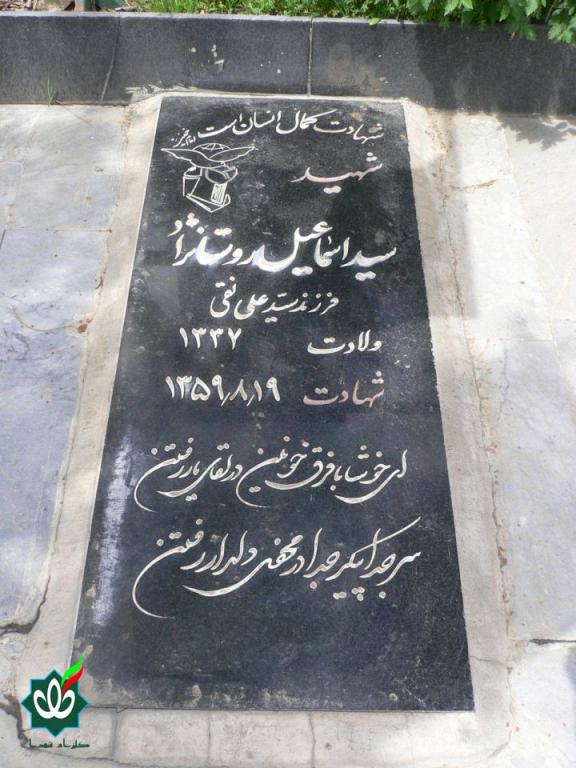 شهادت کمال انسان است امام خمینی
شهید
سید اسماعیل روستانژاد
فرزند سید علی نقی
ولادت ۱۳۳۷
شهادت ۱۳۵۹٫۸٫۱۹
ای خوشا با فرق خونین در لقای یار رفتن
سر جدا پیکر جدا در محفل دلدار رفتن
گلزار شهدا